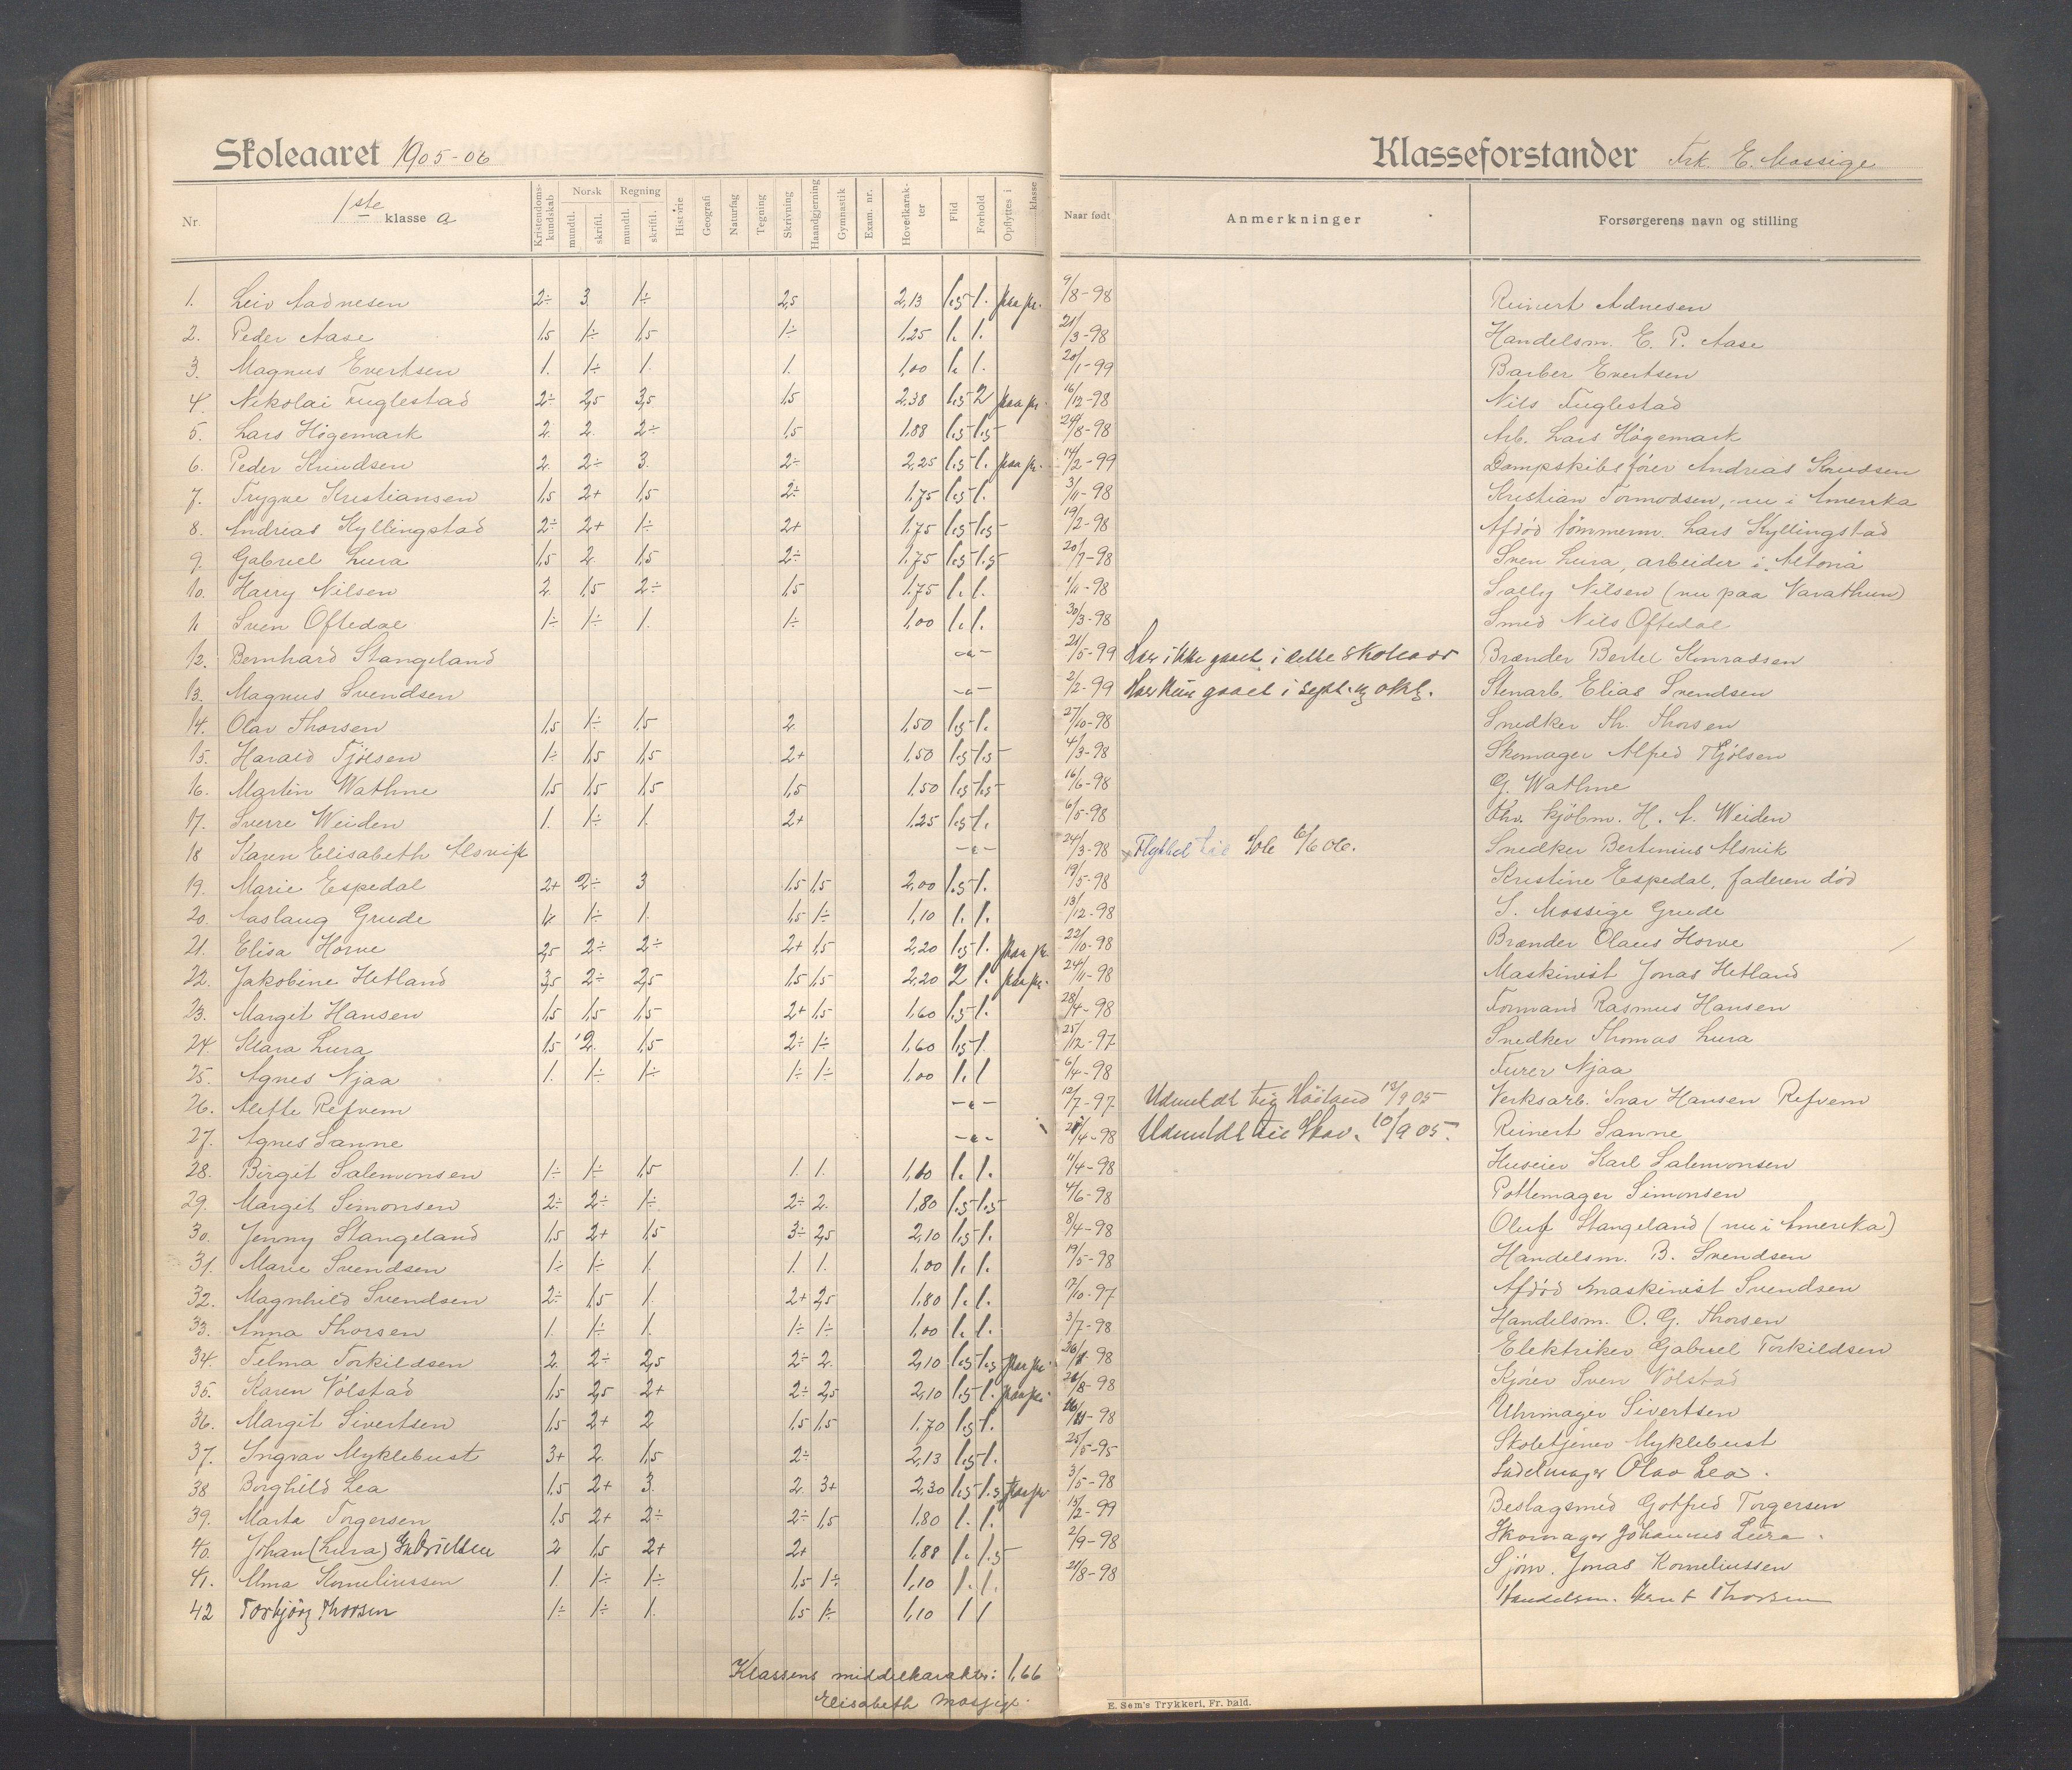 Skoleaaret 1905-06
Klasseforstander Frk. E. Mossige
Nr. 1ste klasse a Kristendomskundskab Norsk mundtl. skriftl. Regning mundtl. skriftl. Historie Geografi Naturfag Tegning Skrivning Haandgjerning Gymnastik Exam. nr. Hovedkarakter Flid Forhold Opflyttes i klasse Naar født Anmerkninger Forsørgerens navn og stilling
1. Leiv Aadnesen 2÷ 3 1÷ 2,5 2,13 1.5 1. paa pr. 9/8-98 Reinert Adnesen
2. Peder Aase 1,5 1÷ 1,5 1÷ 1,25 1. 1. 21/3-98 Handelsm. E. P. Aase
3. Magnus Evertsen 1. 1÷ 1. 1. 1,00 1. 1. 20/1-99 Barber Evertsen
4. Nikolai Fuglestad 2÷ 2,5 3,5 1,5 2,38 1.5 2 paa pr. 16/12-98 Nils Fuglestad
5. Lars Høgemark 2. 2. 2÷ 1,5 1,88 1.5 1.5 24/8-98 Arb. Lars Høgemark
6. Peder Knudsen 2. 2÷ 3. 2÷ 2,25 1.5 1. paa pr. 14/2-99 Dampskibsfører Andreas Knudsen
7. Trygve Kristiansen 1,5 2+ 1,5 2÷ 1,75 1.5 1. 3/11-98 Kristian Tormodsen, nu i Amerika
8. Andreas Kyllingstad 2÷ 2+ 1÷ 2+ 1,75 1.5 1.5 19/2-98 Afdød tømmerm. Lars Kyllingstad
9. Gabriel Lura 1,5 2. 1,5 2÷ 1,75 1.5 1.5 20/7-98 Sven Lura, arbeider i Altona
10. Harry Nilsen 2. 1,5 2÷ 1,5 1,75 1. 1. 1/11-98 Sally Nilsen (nu paa Varathun)
11 Sven Oftedal 1÷ 1÷ 1. 1÷ 1,00 1. 1. 30/3-98 Smed Nils Oftedal
12. Bernhard Stangeland -"- 21/5-99 Har ikke gaaet i dette skoleaar Brænder Bertel Konradsen
13. Magnus Svendsen -"- 2/2-99 Har kun gaaet i sept. og okt. Stenarb. Elias Svendsen
14. Olav Thorsen 1,5 1÷ 1,5 2. 1,50 1.5 1. 27/10-98 Snedker Th. Thorsen
15. Harald Tjølsen 1÷ 1,5 1,5 2+ 1,50 1.5 1.5 4/3-98 Skomager Alfred Tjølsen
16. Martin Wathne 1,5 1,5 1,5 1,5 1,50 1.5 1.5 16/6-98 G. Wathne
17. Sverre Weiden 1. 1÷ 1. 2+ 1,25 1.5 1. 6/5-98 Fhv. kjøbm. H. A. Weiden
18 Karen Elisabeth Alsvik -"- 24/3-98 Flyttet til Sole 6/6 06. Snedker Bertinius Alsvik
19. Marie Espedal 2+ 2÷ 3 1,5 1,5 2,00 1.5 1. 19/5-98 Kristine Espedal, faderen død
20. Aaslaug Grude 1÷ 1÷ 1. 1,5 1÷ 1,10 1. 1. 13/12-98 S. Mossige Grude
21. Elisa Horve 2,5 2÷ 2÷ 2+ 1,5 2,20 1.5 1. paa pr. 22/10-98 Brænder Olaus Horve
22. Jakobine Hetland 3,5 2÷ 2,5 1,5 1,5 2,20 2 1. paa pr. 24/11-98 Maskinist Jonas Hetland
23. Margit Hansen 1,5 1,5 1,5 2+ 1,5 1,60 1.5 1. 28/4-98 Formand Rasmus Hansen
24. Klara Lura 1,5 2. 1,5 2÷ 1÷ 1,60 1.5 1. 25/12-97 Snedker Thomas Lura
25. Agnes Njaa 1. 1÷ 1÷ 1÷ 1÷ 1,00 1. 1 6/4-98 Furer Njaa
26. Alette Refvem -"- 12/7-97 Udmeldt til Høiland 13/9 05 Verksarb. Ivar Hansen Refvem
27. Agnes Sanne -"- 21/4-98 Udmeldt til Skav. 10/9 05. Reinert Sanne
28. Birgit Salemonsen 1÷ 1÷ 1,5 1. 1. 1,10 1. 1. 11/4-98 Huseier Karl Salemonsen
29. Margit Simonsen 2÷ 2÷ 1÷ 2÷ 2. 1,80 1.5 1.5 4/6-98 Pottemager Simonsen
30. Jenny Stangeland 1,5 2+ 1,5 3÷ 2,5 2,10 1.5 1. 8/4-98 Oluf Stangeland (nu i Amerika)
31. Marie Svendsen 1÷ 1÷ 1. 1. 1. 1,00 1. 1. 19/5-98 Handelsm. B. Svendsen
32. Magnhild Svendsen 2÷ 1,5 1. 2+ 2,5 1,80 1. 1. 17/10-97 Afdød maskinist Svendsen
33. Anna Thorsen 1. 1÷ 1. 1÷ 1÷ 1,00 1. 1. 3/7-98 Handelsm. O. G. Thorsen
34. Telma Torkildsen 2. 2÷ 2,5 2÷ 2. 2,10 1.5 1.5 paa pr. 98 Elektriker Gabriel Torkildsen
35. Karen Volstad 1,5 2,5 2+ 2÷ 2,5 2,10 1.5 1. paa pr. /8-98 Kjører Sven Volstad
36. Margit Sivertsen 1,5 2+ 2 1,5 1,5 1.70 1.5 1. 98 Uhrmager Sivertsen
37. Ingvar Myklebust 3+ 2. 1,5 2÷ 2,13 1.5 1. 25/5-95 Skoletjener Myklebust
38 Borghild Lea 1,5 2+ 3. 2. 3+ 2,30 1.5 1.5 paa pr 3/5-98 Sadelmager Olav Lea.
39. Marta Torgersen 1,5 2+ 2÷ 2÷ 1,5 1,80 1. 1. 15/2-99 Beslagsmed Gotfred Torgersen
40. Johan (Lura) Gabrielsen 2 1,5 2+ 2+ 1,88 1. 1.5 2/9-98 Skomager Johannes Lura.
41. Alma Korneliussen 1. 1÷ 1÷ 1,5 1÷ 1,10 1. 1. 21/8-98 Sjøm. Jonas Korneliussen
42 Torbjørg Thorsen 1÷ 1÷ 1. 1,5 1÷ 1,10 1 1 Handelsm. Thorsen
Klassens middelkarakter: 1,66
Elisabeth Mossige.
E. Sem's Trykkeri, Fr. hald.